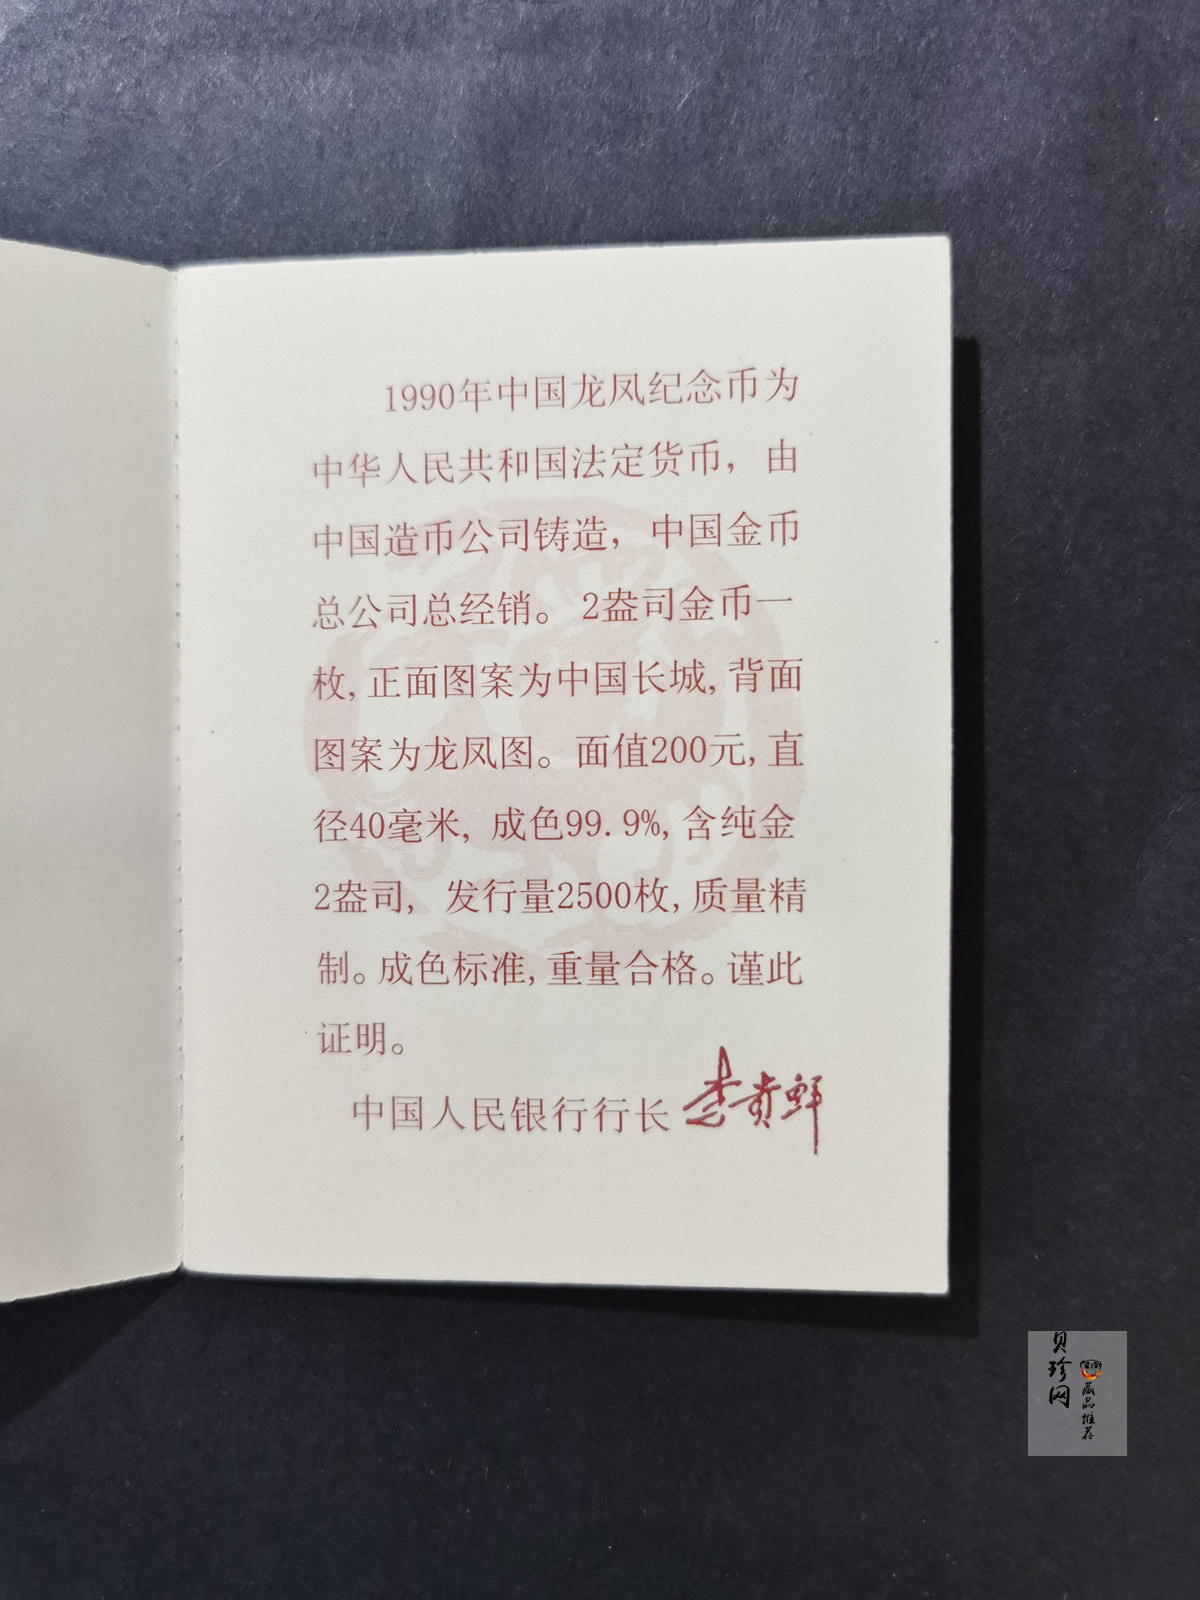 1990年中国龙凤纪念币为
中华人民共和国法定货币，由
中国造币公司铸造，中国金币
总公司总经销。2盎司金币一
枚,正面图案为中国长城,背面
图案为龙凤图。面值200元,直
径40毫米,成色99.9%,含纯金
2盎司,发行量2500枚,质量精
制。成色标准,重量合格。谨此
证明。
中国人民银行行长 李贵鲜
贝珍网
藏品推荐